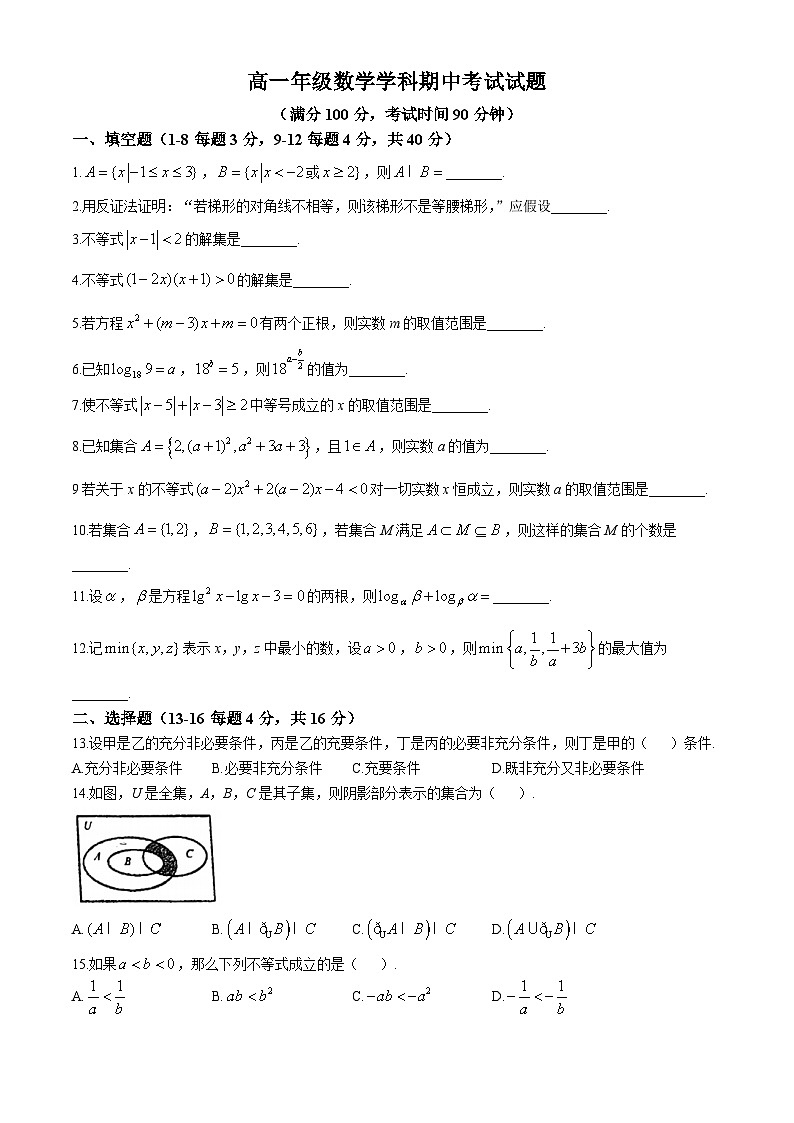 高一年级数学学科期中考试试题
（满分100分，考试时间90分钟）
一、填空题（1-8每题3分，9-12每题4分，共40分）
1. A={x|-1≤x≤3}，B={x|x<-2或x≥2}，则A| B=________.
2.用反证法证明：“若梯形的对角线不相等，则该梯形不是等腰梯形，”应假设________.
3.不等式|x-1|<2的解集是________.
4.不等式(1-2x)(x+1)>0的解集是________.
5.若方程x²+(m-3)x+m=0有两个正根，则实数m的取值范围是________.
6.已知log₁₈9=a，18^b=5，则18^(a-b/2)的值为________.
7.使不等式|x-5|+|x-3|≥2中等号成立的x的取值范围是________.
8.已知集合A={2,(a+1)²,a²+3a+3}，且1∈A，则实数a的值为________.
9若关于x的不等式(a-2)x²+2(a-2)x-4<0对一切实数x恒成立，则实数a的取值范围是________.
10.若集合A={1,2}，B={1,2,3,4,5,6}，若集合M满足A⊂M⊆B，则这样的集合M的个数是
________.
11.设α，β是方程lg²x-lgx-3=0的两根，则log_α β+log_β α=________.
12.记min{x,y,z}表示x，y，z中最小的数，设a>0，b>0，则min{a,1/b,1/a+3b}的最大值为
________.
二、选择题（13-16每题4分，共16分）
13.设甲是乙的充分非必要条件，丙是乙的充要条件，丁是丙的必要非充分条件，则丁是甲的（ ）条件.
A.充分非必要条件 B.必要非充分条件 C.充要条件 D.既非充分又非必要条件
14.如图，U是全集，A，B，C是其子集，则阴影部分表示的集合为（ ）.
U
A B C
A.(A| B)| C B.(A| ð_U B)| C C.(ð_U A| B)| C D.(A∪ð_U B)| C
15.如果a<b<0，那么下列不等式成立的是（ ）.
A.1/a<1/b B.ab<b² C.-ab<-a² D.-1/a<-1/b